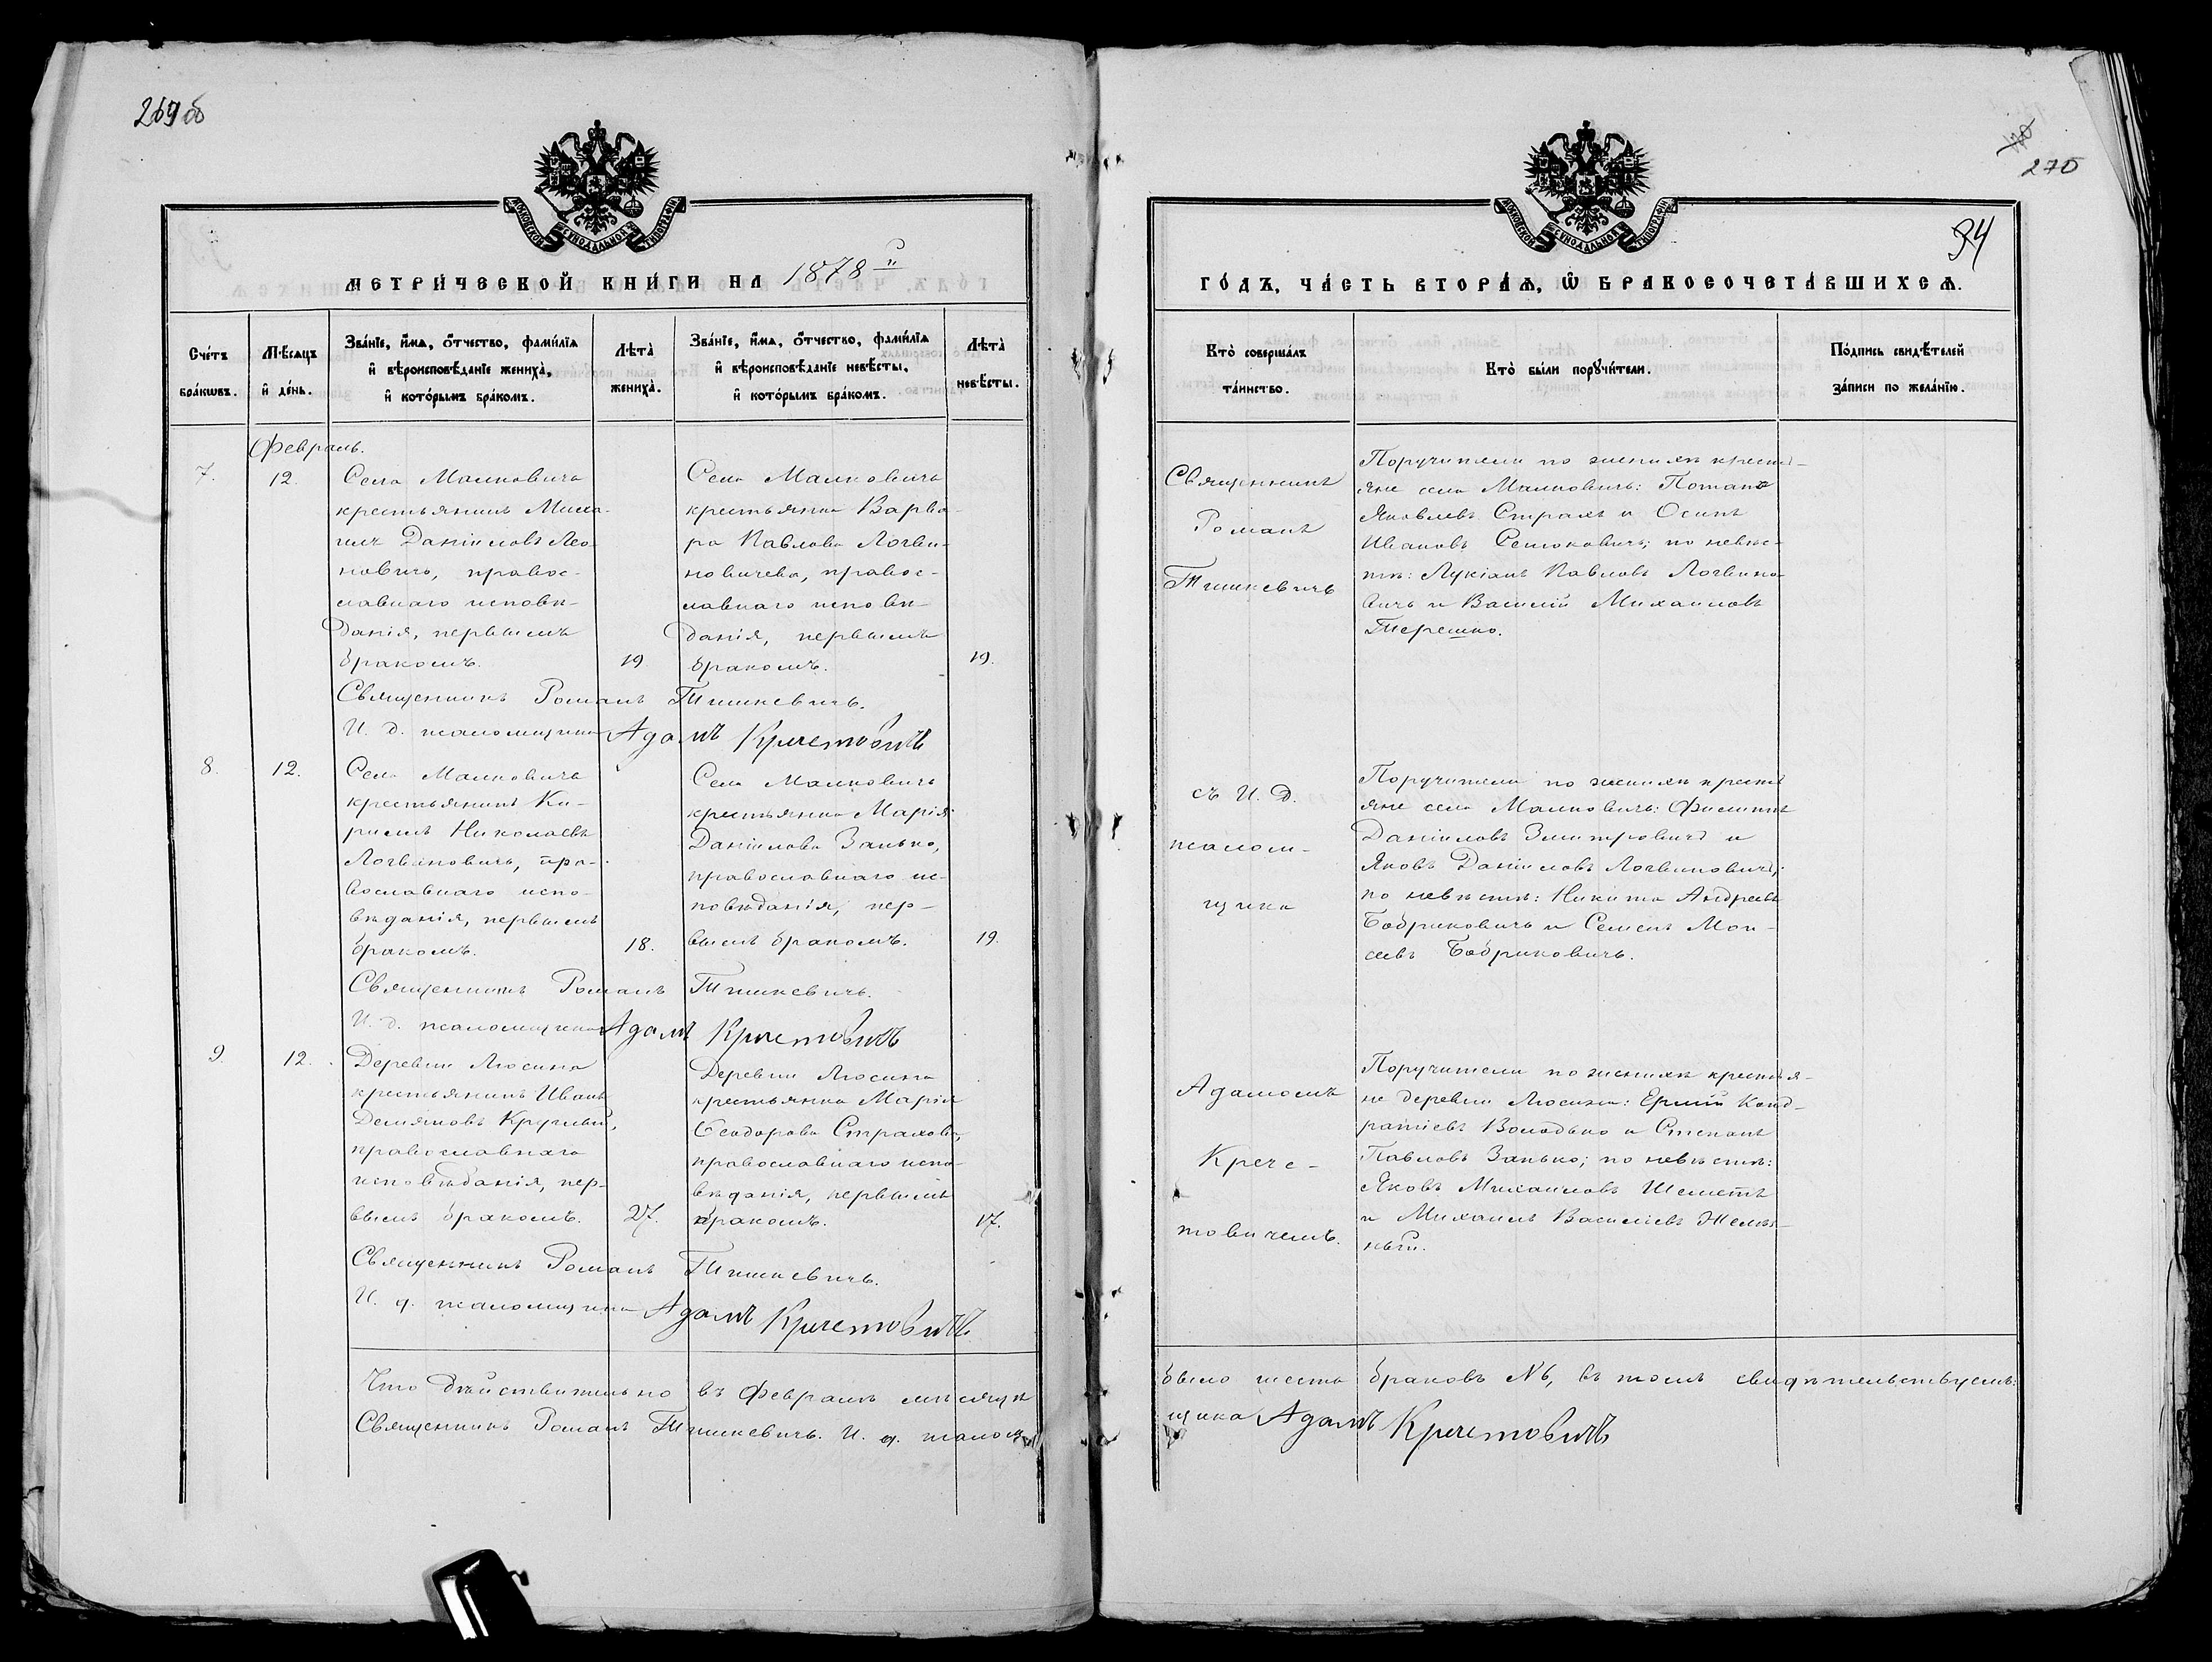 269 об
МОСКОВСКОЙ СѴНОДАЛЬНОЙ ТИПОГРАФІИ
МЕТРИ́ЧЕСКОЙ КНИ́ГИ НА 1878 й
Сче́тъ бра́кωвъ.
Мѣ́сяцъ и҆ де́нь.
Зва́нїе, и҆́мѧ, ѻ҆́тчество, фами́лїѧ
и҆ вѣроисповѣ́данїе жениха̀,
и҆ кото́рымъ бра́комъ.
Лѣта̀ жениха̀.
Зва́нїе, и҆́мѧ, ѻ҆́тчество, фами́лїѧ
и҆ вѣроисповѣ́данїе невѣ́сты,
и҆ кото́рымъ бра́комъ.
Лѣта̀ невѣ́сты.
Февраль.
7.
12.
Села Малковичъ
крестьянинъ Миха-
илъ Даніиловъ Лео-
новичъ, правос-
лавнаго исповѣ-
данія, первымъ
бракомъ.
19
Села Малковичъ
крестьянка Варва-
ра Павлова Логви-
новичева, правос-
лавнаго исповѣ-
данія, первымъ
бракомъ.
19.
Священникъ Романъ Тышкевичъ.
И. д. псаломщика Адамъ Кречетовичъ
8.
12.
Села Малковичъ
крестьянинъ Ки-
риллъ Николаевъ
Логвиновичъ, пра-
вославнаго испо-
вѣданія, первымъ
бракомъ.
18.
Села Малковичъ
крестьянка Марія
Даніилова Занько,
православнаго ис-
повѣданія, пер-
вымъ бракомъ.
19.
Священникъ Романъ Тышкевичъ.
И. д. псаломщика Адамъ Кречетовичъ
9.
12.
Деревни Люсина
крестьянинъ Иванъ
Демяновъ Круглый,
православнаго
исповѣданія, пер-
вымъ бракомъ.
27.
Деревни Люсина
крестьянка Марія
Ѳеодорова Страхова,
православнаго испо-
вѣданія, первымъ
бракомъ.
17.
Священникъ Романъ Тышкевичъ.
И. д. псаломщика Адамъ Кречетовичъ
Что дѣйствительно въ Февралѣ мѣсяцѣ
Священникъ Романъ Тышкевичъ. И. д. псалом-
270
94
МОСКОВСКОЙ СѴНОДАЛЬНОЙ ТИПОГРАФІИ
ГО́ДЪ, ЧА́СТЬ ВТОРА́Ѧ, Ѽ БРАКОСОЧЕТА́ВШИХСѦ.
Кто̀ соверша́лъ
та́инство.
Кто̀ бы́ли порꙋчи́тели.
По́дпись свидѣ́телей
за́писи по жела́нїю.
Священникъ
Романъ
Тышкевичъ
Поручители по женихѣ кресть-
яне села Малковичъ: Потапъ
Яковлевъ Страхъ и Осипъ
Ивановъ Сенюковичъ; по невѣс-
тѣ: Лукіанъ Павловъ Логвино-
вичъ и Василій Михаиловъ
Терешко.
съ И. Д.
псалом-
щика
Поручители по женихѣ кресть
яне села Малковичъ: Филиппъ
Даніиловъ Змитровичъ и
Яковъ Даніиловъ Логвиновичъ;
по невѣстѣ: Никита Андреевъ
Бобриковичъ и Семенъ Мои-
сеевъ Бобриковичъ.
Адамомъ
Крече-
товичемъ.
Поручители по женихѣ крестья-
не деревни Люсина: Ермій Конд-
ратіевъ Володько и Степанъ
Павловъ Занько; по невѣстѣ:
Яковъ Михаиловъ Шеметъ
и Михаилъ Василіевъ Желѣз-
ный.
было шесть браковъ №6, въ томъ свидѣтельствуемъ:
щика Адамъ Кречетовичъ